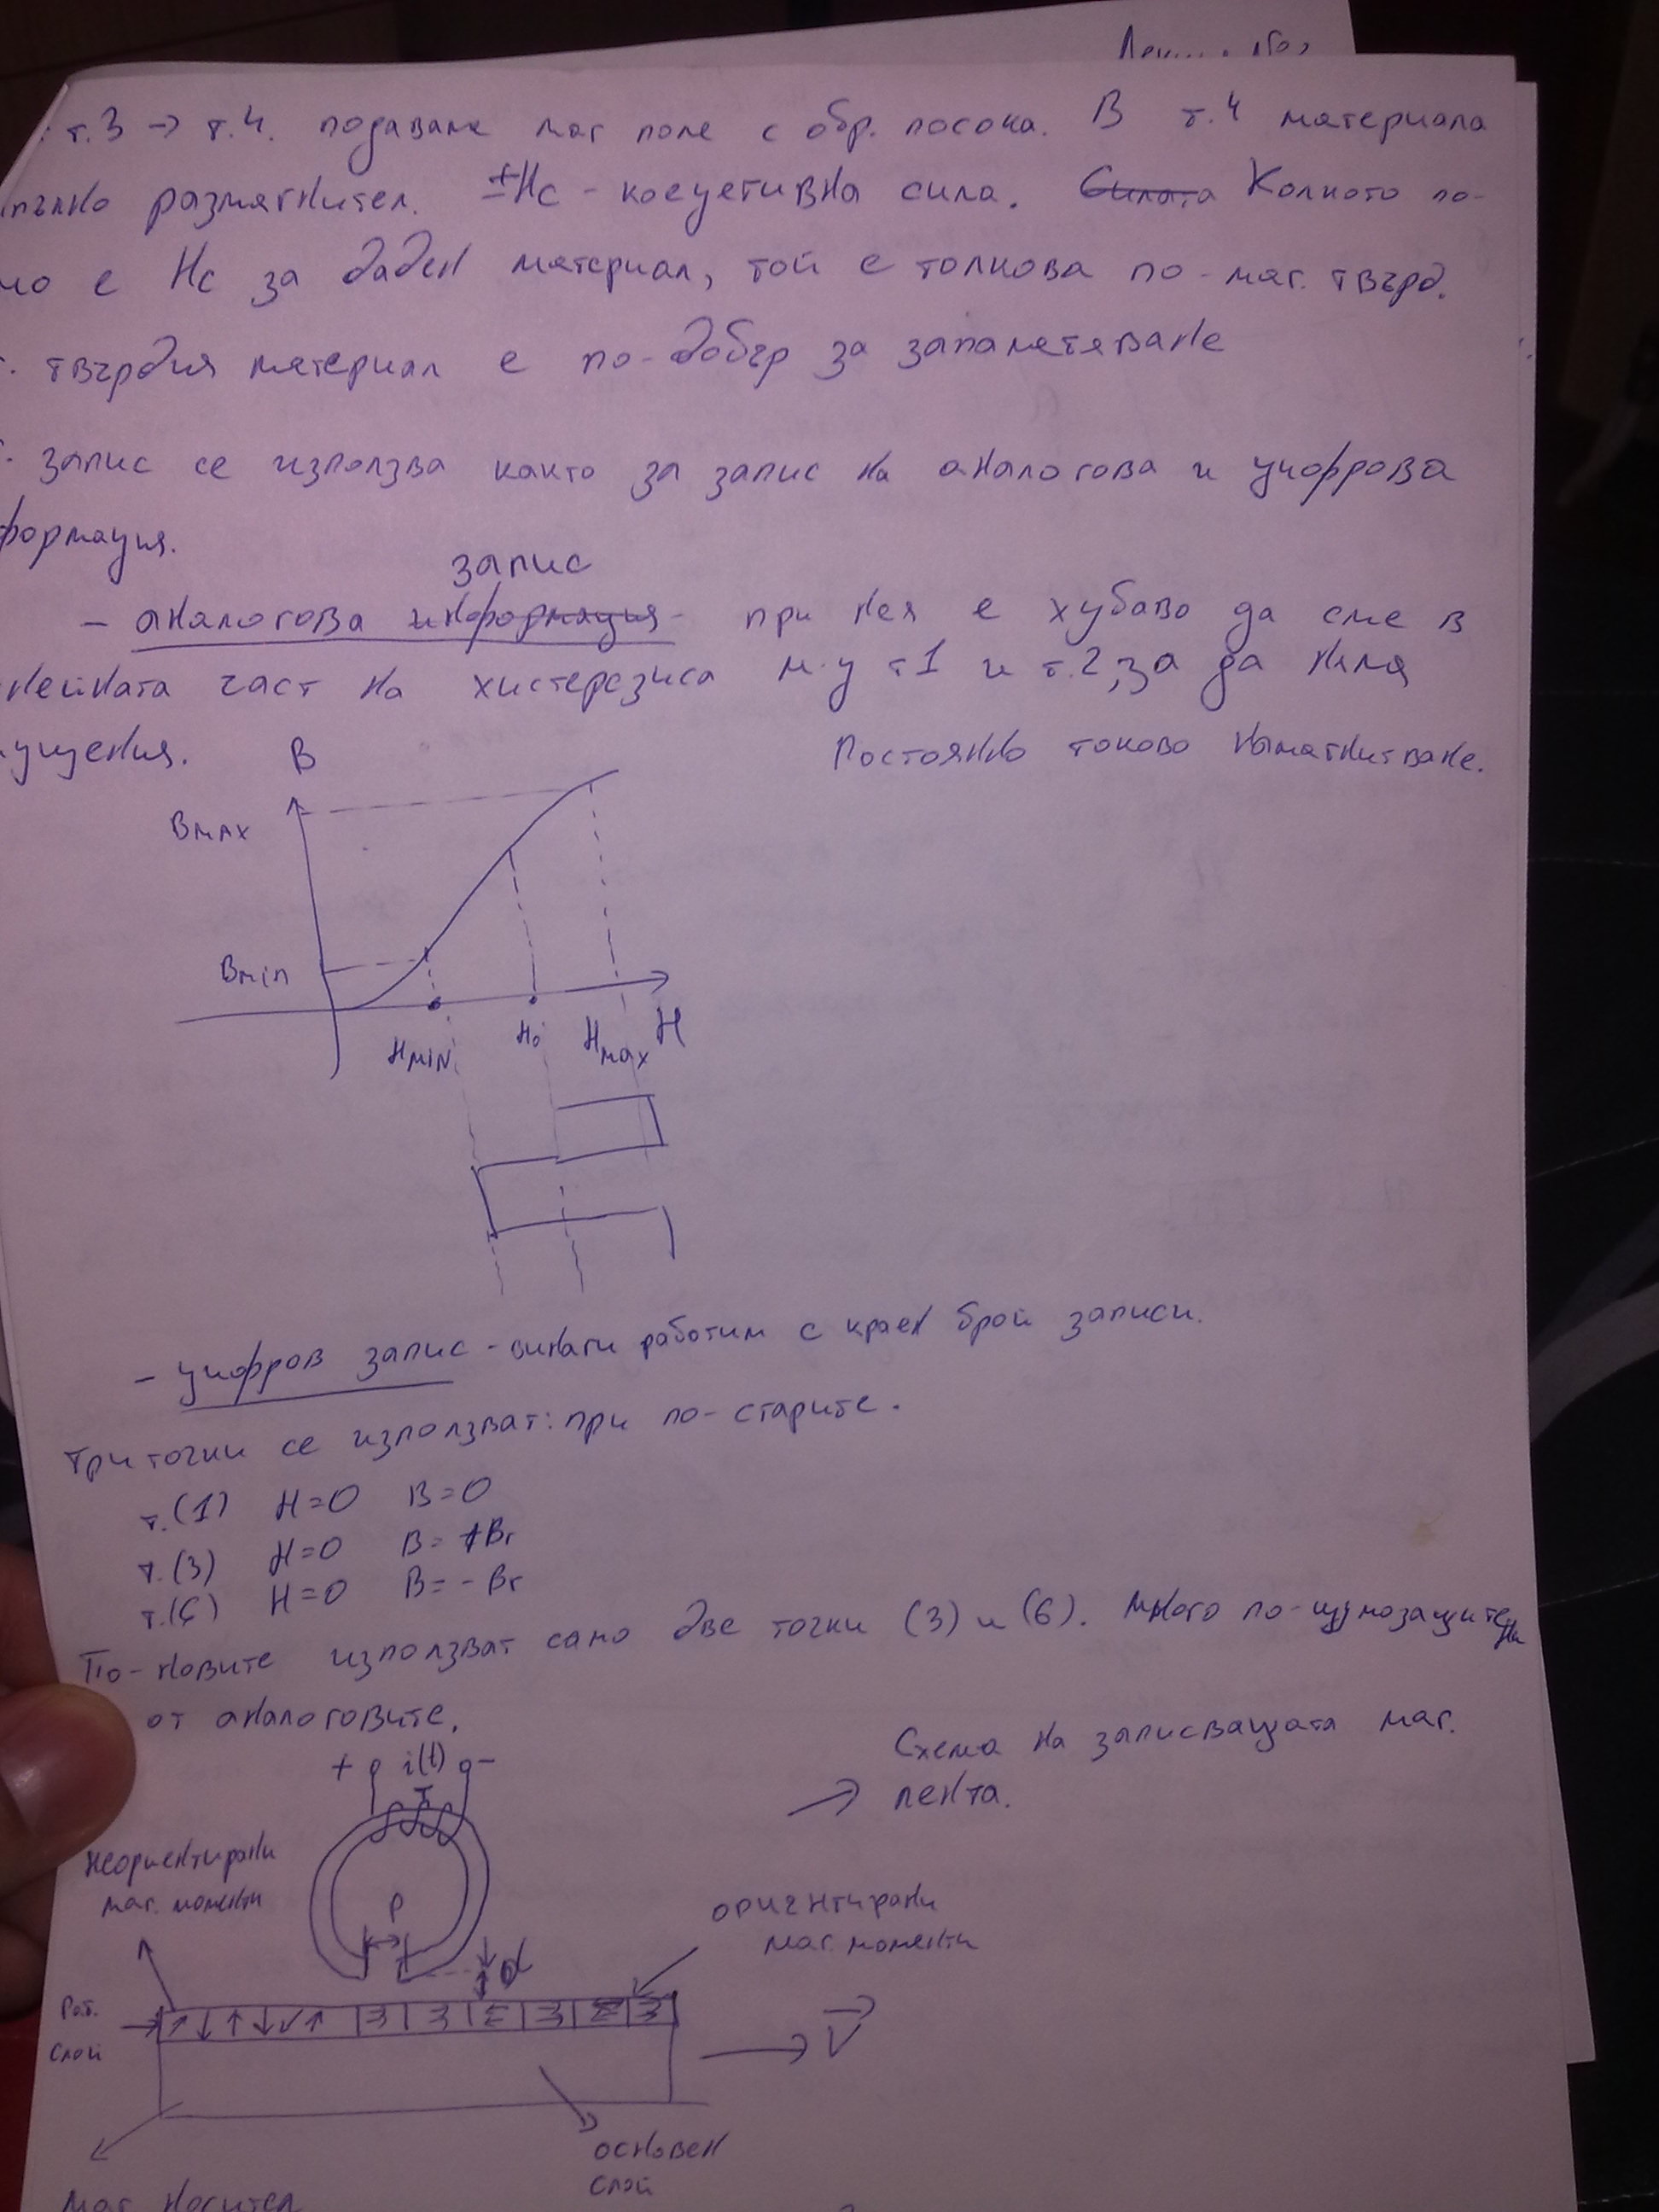 т.3 -> т.4. подаваме маг поле с обр. посока. В т.4 материала
пълно размагнител. ±Hc - коецетивна сила. Силата Колкото по-
мо е Hc за даден материал, той е толкова по-маг. твърд.
твърдия материал е по-добър за запаметяване
запис се използва както за запис на аналогова и цифрова
формация.
запис
- аналогова информация - при нея е хубаво да сме в
нейната част на хистерезиса м.у т1 и т.2, за да няма
ущения.
Постоянно токово намагнитване.
B
Bmax
Bmin
Hmin
H₀
Hmax
H
- цифров запис - винаги работим с краен брой записи.
Три точки се използват: при по-старите.
т.(1) H=0 B=0
т.(3) H=0 B=+Br
т.(6) H=0 B=-Br
По-новите използват само две точки (3) и (6). Много по-шумозащитени
от аналоговите.
Схема на записващата маг.
-> лента.
+ i(t) -
неориентирани
маг. моменти
P
d
ориентирани
маг. моменти
Раб.
слой
V
основен
слой
маг носител